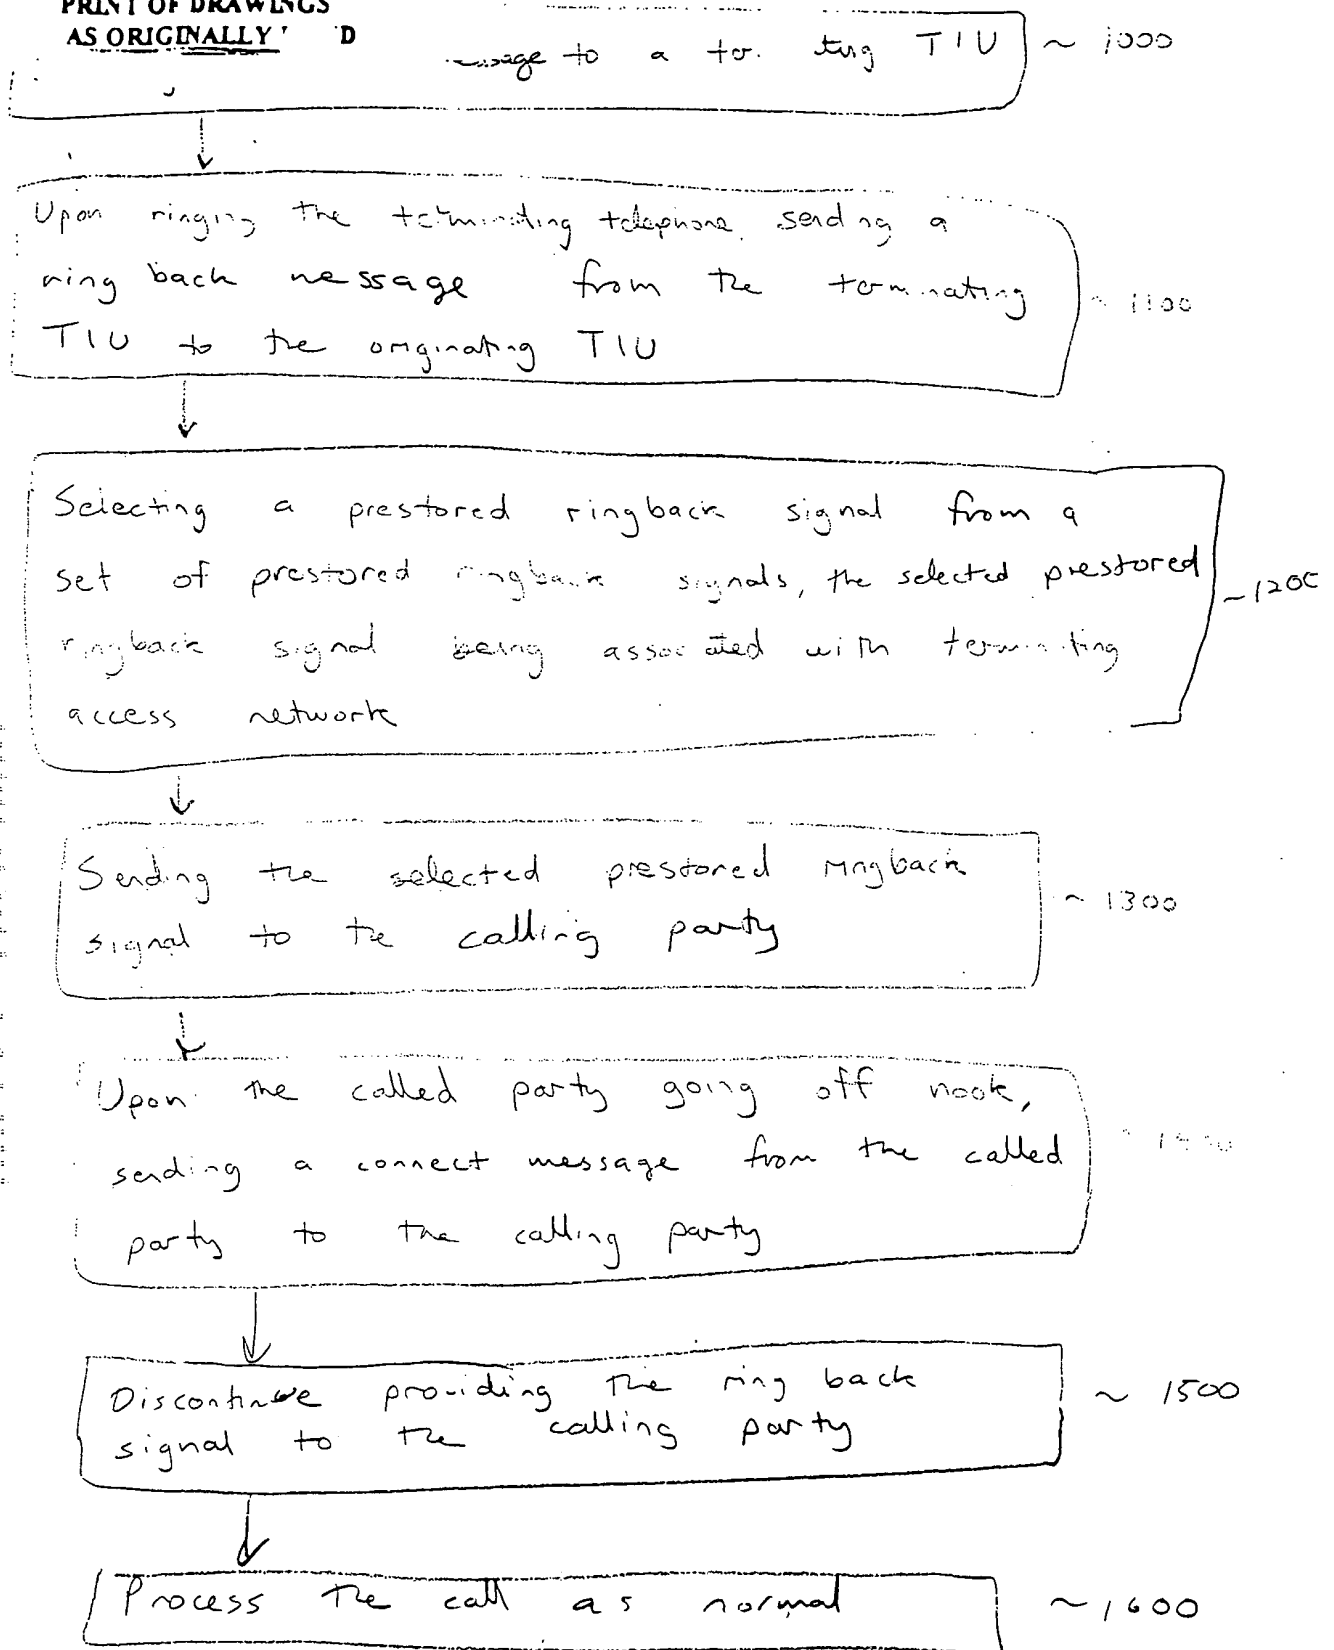 PRINT OF DRAWINGS
AS ORIGINALLY D
to a TIU ~ 1000
Upon ringing the terminating telephone, sending a
ring back message from the terminating
~ 1100
TIU to the originating TIU
Selecting a prestored ringback signal from a
set of prestored ringback signals, the selected prestored
~1200
ringback signal being associated with terminating
access network
Sending the selected prestored ringback
~ 1300
signal to the calling party
Upon the called party going off hook,
sending a connect message from the called
party to the calling party
Discontinue providing the ring back
~ 1500
signal to the calling party
Process the call as normal ~ 1600